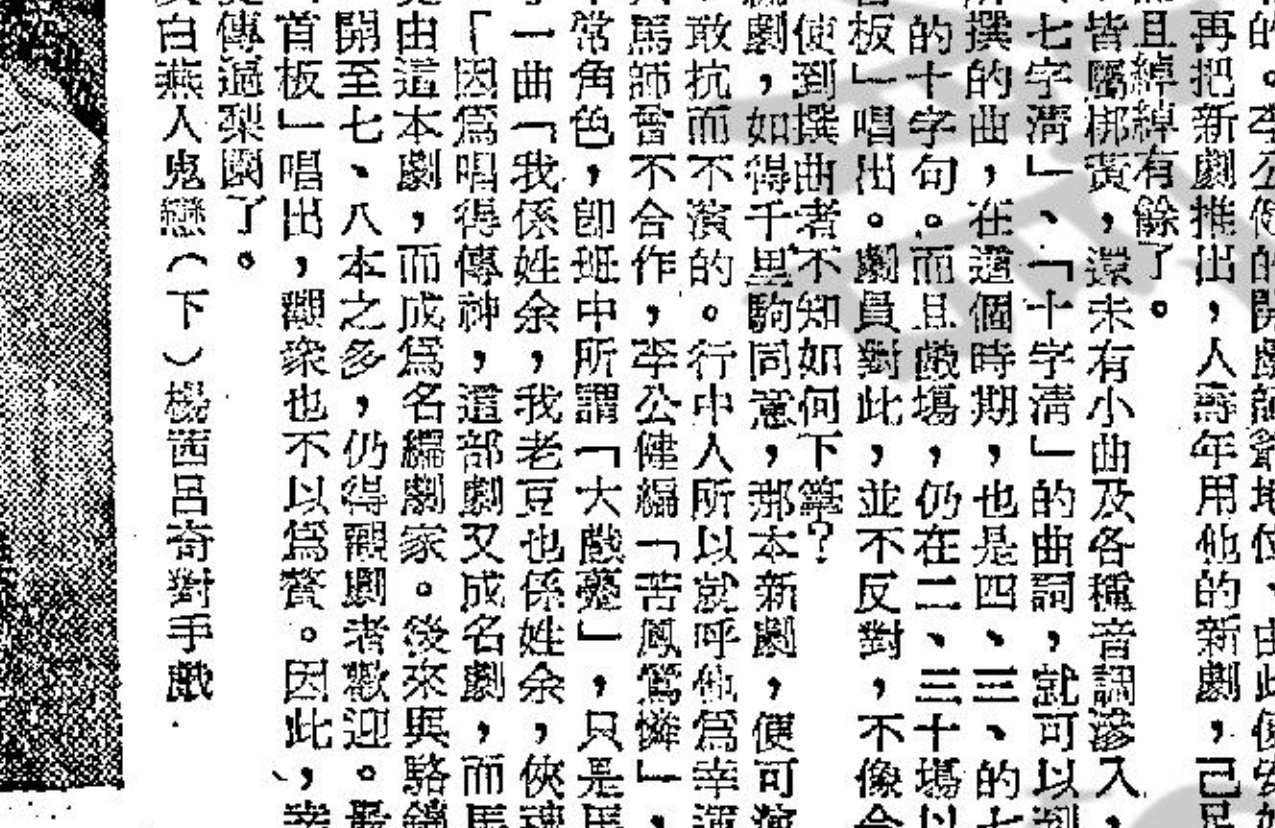 的。李公健的開
再把新劇推出，人壽年用他的新劇，已足
且綽綽有餘了。
皆屬梆黃，還未有小曲及各種音調滲入，
七字清」、「十字清」的曲詞，就可以到
撰的曲，在這個時期，也是四、三、的七
的十字句。而且戲場，仍在二、三十場以
板」唱出。劇員對此，並不反對，不像今
使到撰曲者不知如何下筆？
劇，如得千里駒同意，那本新劇，便可演
敢抗而不演的。行中人所以就呼他為幸運
馬師曾不合作，李公健編「苦鳳鶯憐」，
常角色，即班中所謂「大戲躉」，只是馬
一曲「我係姓余，我老豆也係姓余，俠魂
「因為唱得傳神，這部劇又成名劇，而馬
由這本劇，而成為名編劇家。後來與駱錦
開至七、八本之多，仍得觀劇者歡迎。最
首板」唱出，觀衆也不以為贅。因此，幸
傳遍梨園了。
白燕人鬼戀（下）楊西呂奇對手戲